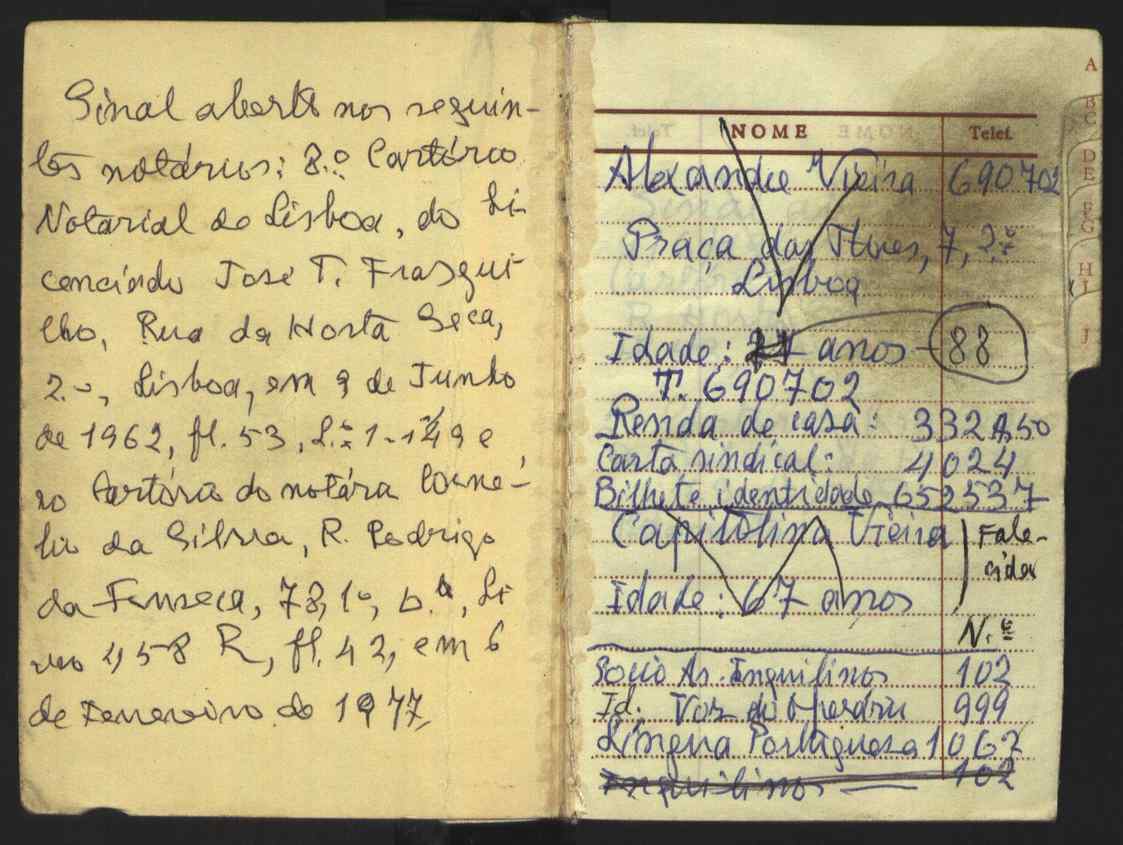 Sinal aberto nos seguin-
tes notários: 8.º Cartório
Notarial de Lisboa, do li-
cenciado José T. Frasqui-
lho, Rua da Horta Seca,
2.º, Lisboa, em 9 de Junho
de 1962, fl. 53, L.º 1-149 e
no Cartório do notário Corné-
lio da Silva, R. Rodrigo
da Fonseca, 78, 1º, Li-
vro 458 R, fl. 42, em 6
de Fevereiro de 1977
A
B
C
D
E
F
G
H
I
J
NOME Telef.
Alexandre Vieira 690702
Praça das Flores, 7, 2.º
Lisboa
Idade: anos - 88
T. 690702
Renda de casa: 332$50
Carta sindical: 4024
Bilhete identidade 652537
Capitolina Vieira Fale-
cida
Idade: 67 anos
N.º
Socio As. Inquilinos 102
Id. Voz do Operário 999
Língua Portuguesa 1067
Inquilinos — 102